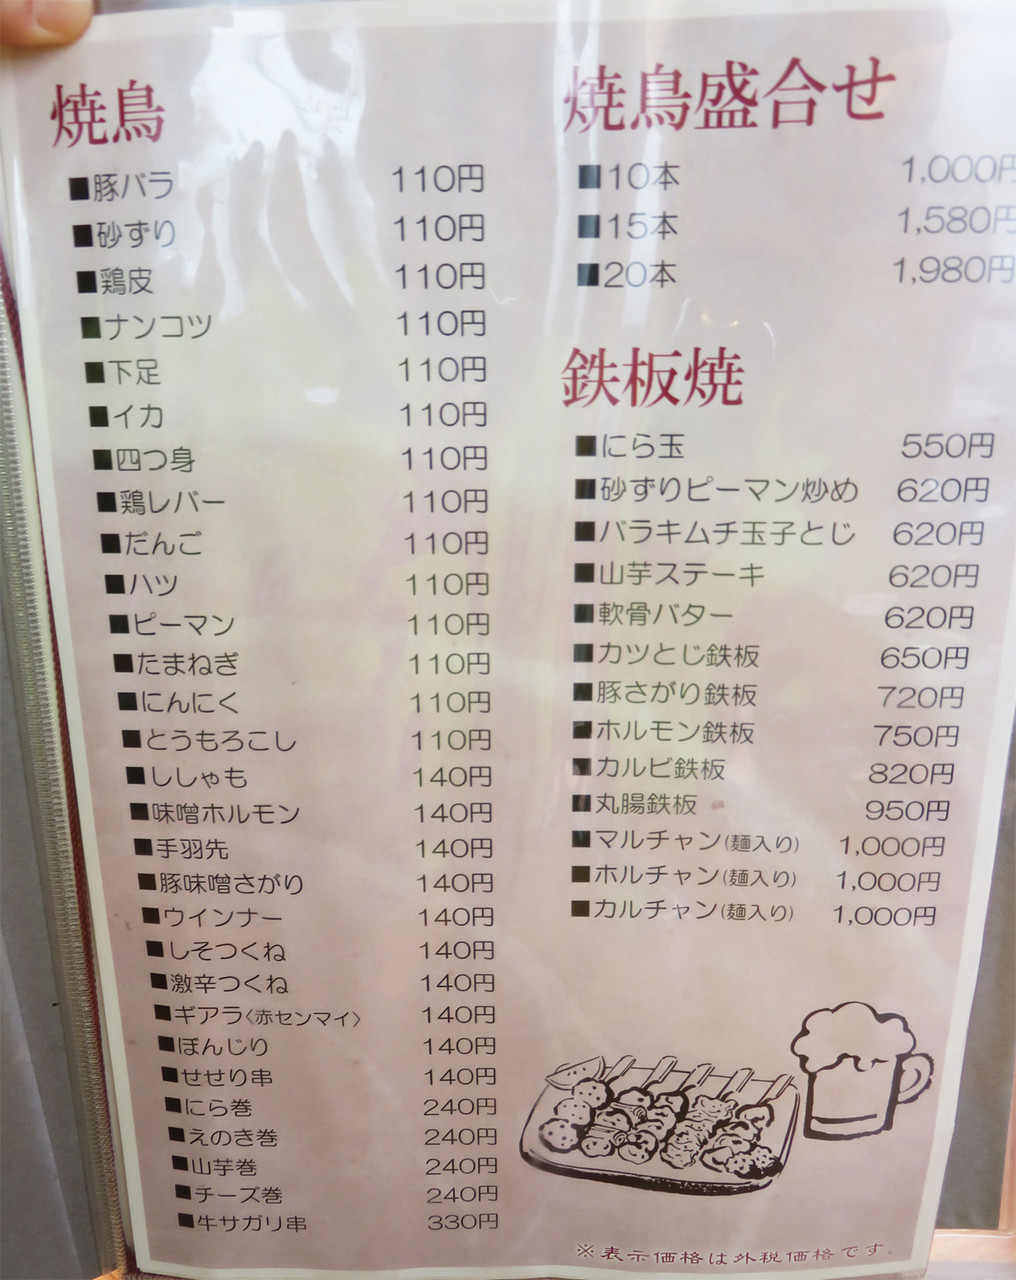 焼鳥
■豚バラ 110円
■砂ずり 110円
■鶏皮 110円
■ナンコツ 110円
■下足 110円
■イカ 110円
■四つ身 110円
■鶏レバー 110円
■だんご 110円
■ハツ 110円
■ピーマン 110円
■たまねぎ 110円
■にんにく 110円
■とうもろこし 110円
■ししゃも 140円
■味噌ホルモン 140円
■手羽先 140円
■豚味噌さがり 140円
■ウインナー 140円
■しそつくね 140円
■激辛つくね 140円
■ギアラ〈赤センマイ〉 140円
■ぼんじり 140円
■せせり串 140円
■にら巻 240円
■えのき巻 240円
■山芋巻 240円
■チーズ巻 240円
■牛サガリ串 330円
焼鳥盛合せ
■10本 1,000円
■15本 1,580円
■20本 1,980円
鉄板焼
■にら玉 550円
■砂ずりピーマン炒め 620円
■バラキムチ玉子とじ 620円
■山芋ステーキ 620円
■軟骨バター 620円
■カツとじ鉄板 650円
■豚さがり鉄板 720円
■ホルモン鉄板 750円
■カルビ鉄板 820円
■丸腸鉄板 950円
■マルチャン(麺入り) 1,000円
■ホルチャン(麺入り) 1,000円
■カルチャン(麺入り) 1,000円
※表示価格は外税価格です。